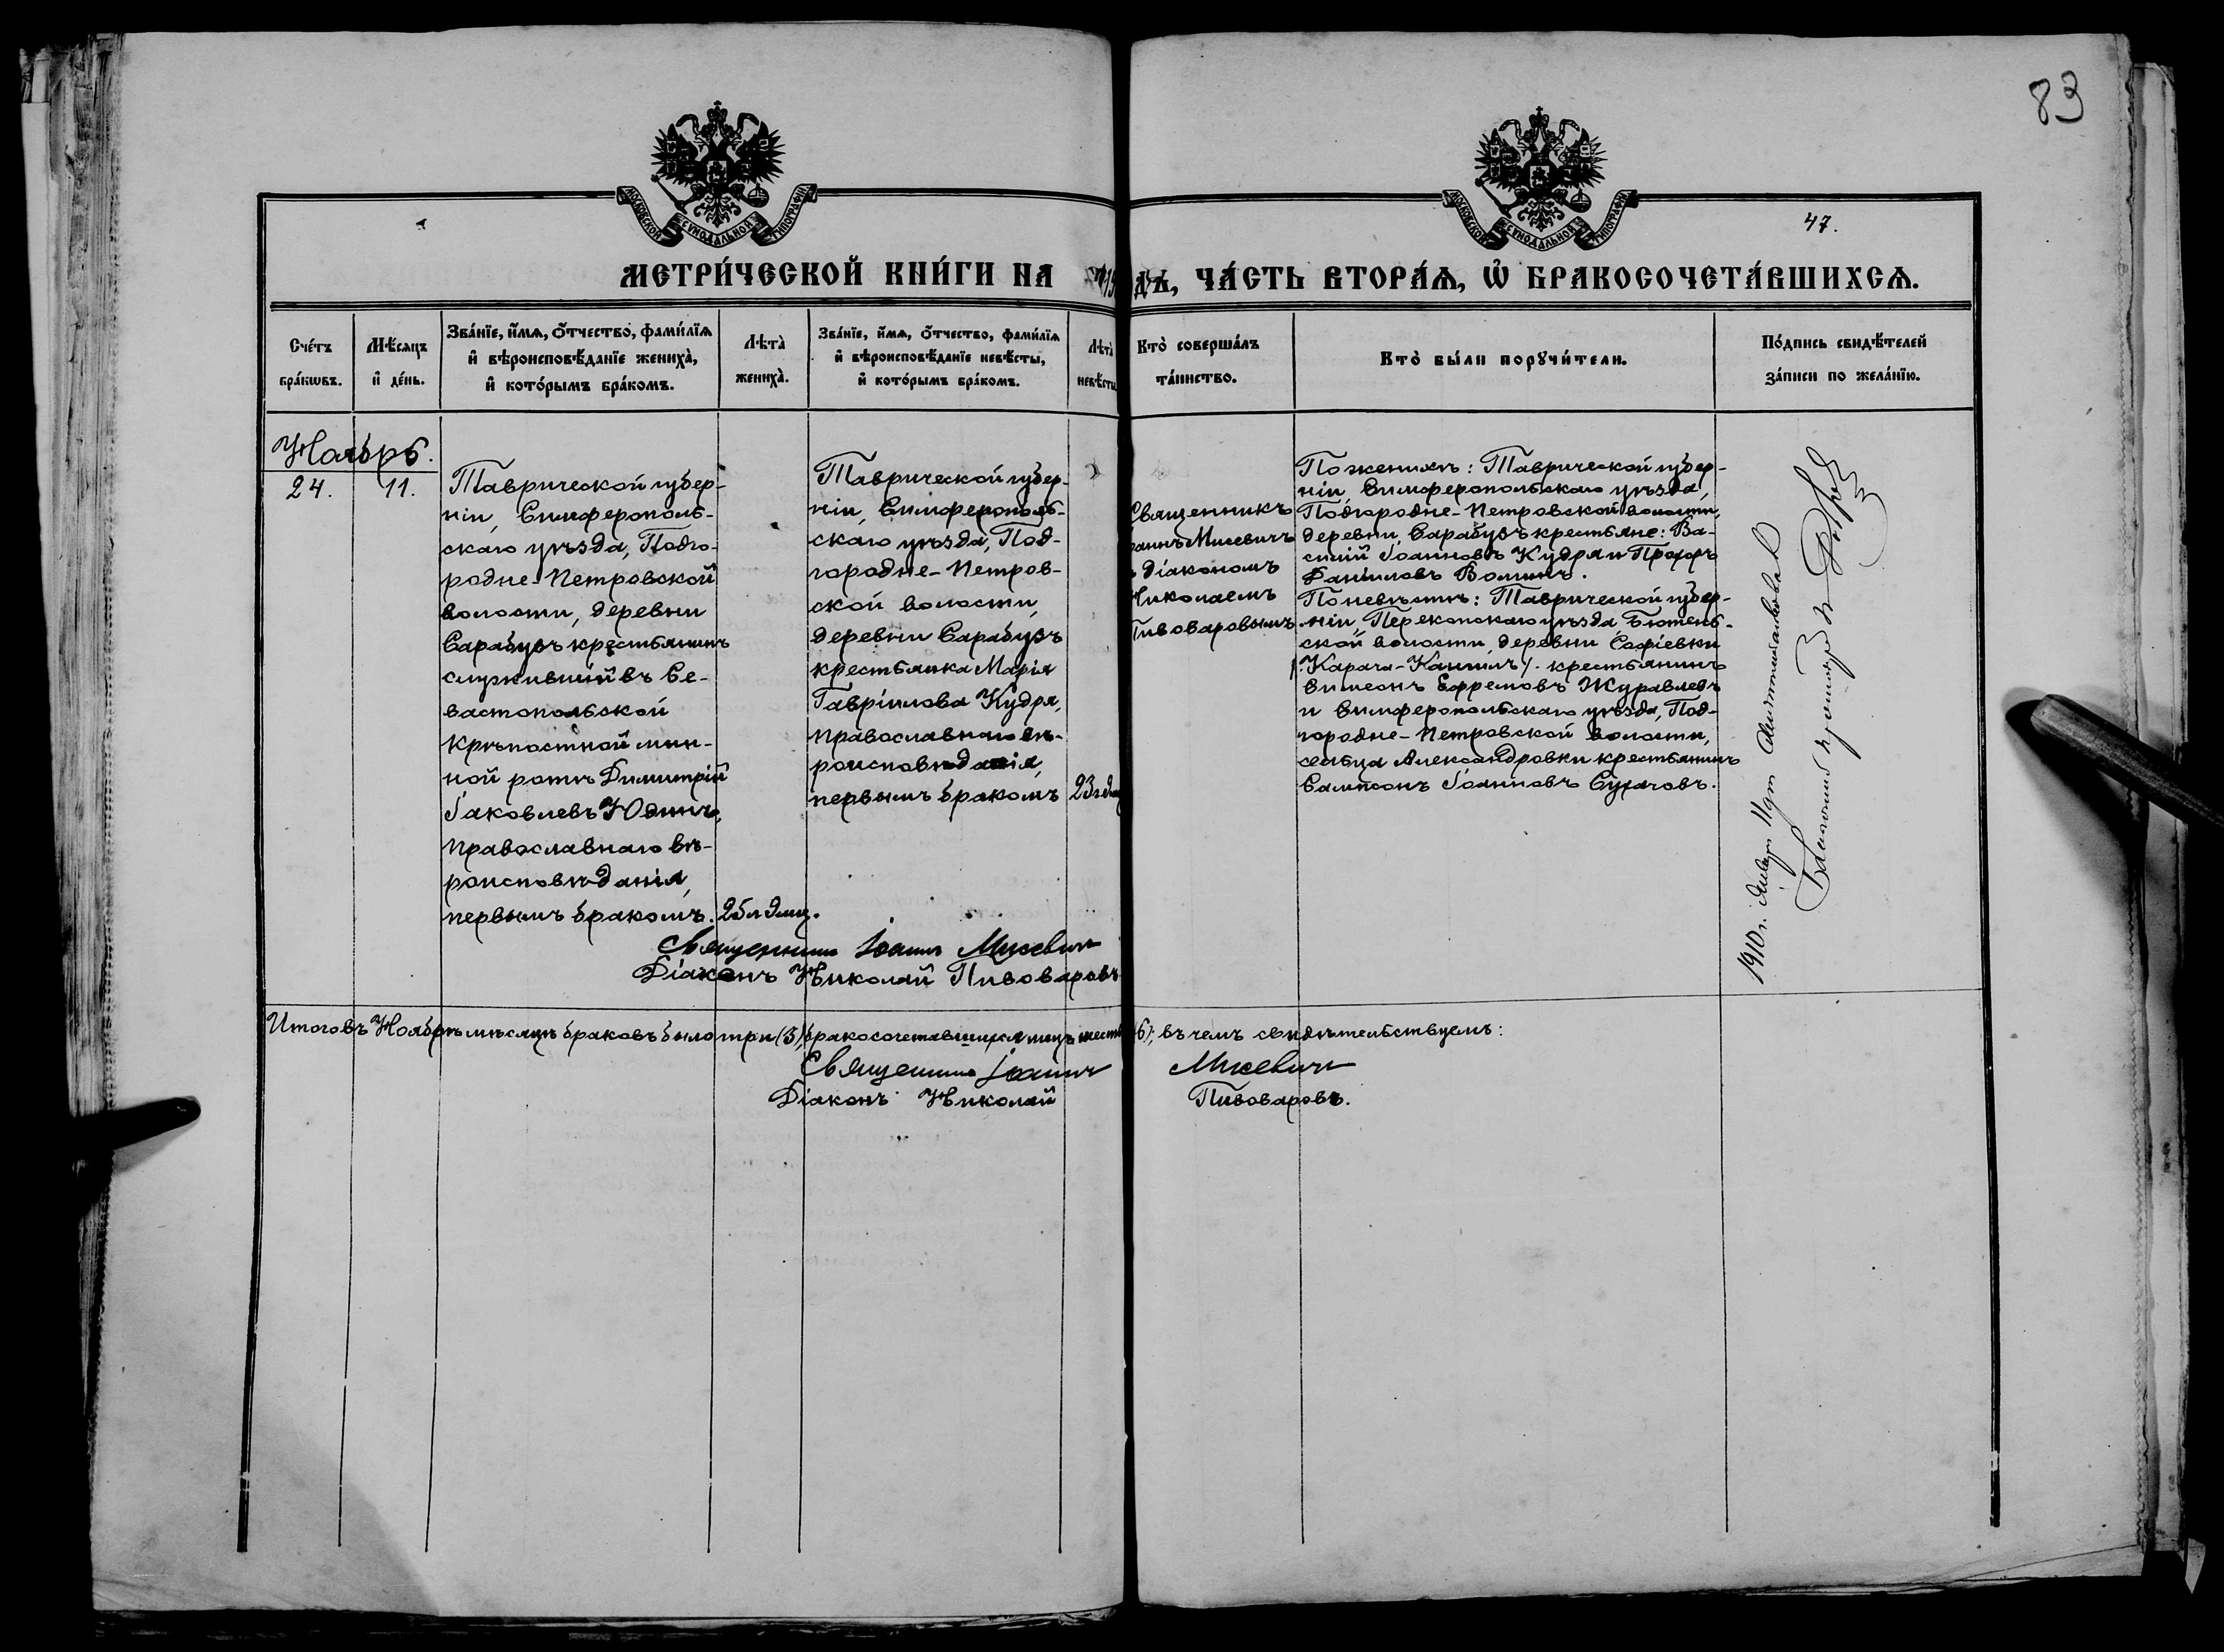 83
47.
МОСКОВСКОЙ СѴНОДАЛЬНОЙ ТИПОГРАФІИ
МОСКОВСКОЙ СѴНОДАЛЬНОЙ ТИПОГРАФІИ
МЕТРИ́ЧЕСКОЙ КНИ́ГИ НА
ДЪ, ЧА́СТЬ ВТОРА́Ѧ, Ѡ҆ БРАКОСОЧЕТА́ВШИХСѦ.
Сче́тъ
бра́кѡвъ.
Мѣ́сяцъ
и҆ де́нь.
Зва́нїе, и҆́мѧ, ѻ҆́тчество, фами́лїѧ
и҆ вѣроисповѣ́данїе жениха̀,
и҆ кото́рымъ бра́комъ.
Лѣ́та̀
жениха̀.
Зва́нїе, и҆́мѧ, ѻ҆́тчество, фами́лїѧ
и҆ вѣроисповѣ́данїе невѣ́сты,
и҆ кото́рымъ бра́комъ.
Лѣ́та̀
невѣ́сты
Кто̀ соверша́лъ
та́инство.
Кто̀ бы́ли порꙋчи́тели.
По́дпись свидѣ́телей
за́писи по жела́нїю.
Ноябрь.
24.
11.
Таврической губер-
ніи, Симферополь-
скаго уѣзда, Подго-
родне-Петровской
волости, деревни
Сарабузъ крестьянинъ
служившій въ Се-
вастопольской
крѣпостной мин-
ной ротѣ Димитрій
Іаковлевъ Юдинъ,
православнаго вѣ-
роисповѣданія,
первымъ бракомъ.
25 л.
Таврической губер-
ніи, Симферополь-
скаго уѣзда, Под-
городне-Петров-
ской волости,
деревни Сарабузъ
крестьянка Марія
Гавріилова Кудря,
православнаго вѣ-
роисповѣданія,
первымъ бракомъ
23
Священникъ
Іоаннъ Мисевичъ
съ діакономъ
Николаемъ
Пивоваровымъ
По женихѣ: Таврической губер-
ніи, Симферопольскаго уѣзда,
Подгородне-Петровской волости,
деревни, Сарабузъ крестьяне: Ва-
силій Іоанновъ Кудря и Прохоръ
Даніиловъ Волинъ.
По невѣстѣ: Таврической губер-
ніи, Перекопскаго уѣзда Бютень-
ской волости, деревни Софіевки
/. Карача-Кангилъ /. крестьянинъ
Симеонъ Ефремовъ Журавлевъ
и Симферопольскаго уѣзда, Под-
городне-Петровской волости,
сельца Александровки крестьянинъ
Сампсонъ Іоанновъ Сухачовъ.
1910 г. Января 11 дня
Священникъ Іоаннъ Мисевичъ
Діаконъ Николай Пивоваровъ
Итого въ Ноябрѣ мѣсяцѣ браковъ было три (3), бракосочетавшихся лицъ шесть (6); въ чемъ свидѣтельствуемъ:
Священникъ Іоаннъ Мисевичъ
Діаконъ Николай Пивоваровъ.